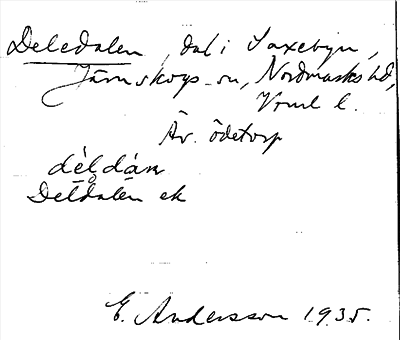 Deledalen, dal i Saxebyn,
Järnskogs sn, Nordmarks hd,
Vrml l.
Äv. ödetorp
dèldán
Deldalen ek
E. Andersson 1935.